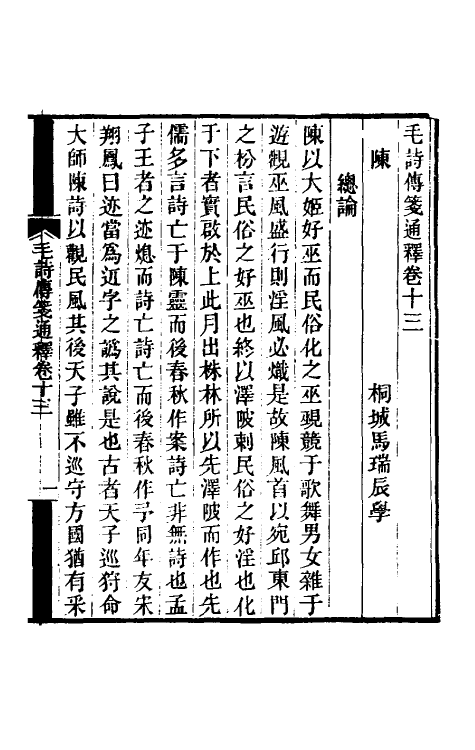 毛詩傳箋通釋卷十三
桐城馬瑞辰學
陳
總論
陳以大姬好巫而民俗化之巫覡競于歌舞男女雜于
遊觀巫風盛行則淫風必熾是故陳風首以宛邱東門
之枌言民俗之好巫也終以澤陂刺民俗之好淫也化
于下者實啟於上此月出株林所以先澤陂而作也先
儒多言詩亡于陳靈而後春秋作案詩亡非無詩也孟
子王者之迹熄而詩亡詩亡而後春秋作予同年友宋
翔鳳曰迹當爲䢋字之譌其說是也古者天子巡狩命
大師陳詩以觀民風其後天子雖不巡守方國猶有采
毛詩傳箋通釋卷十三
一